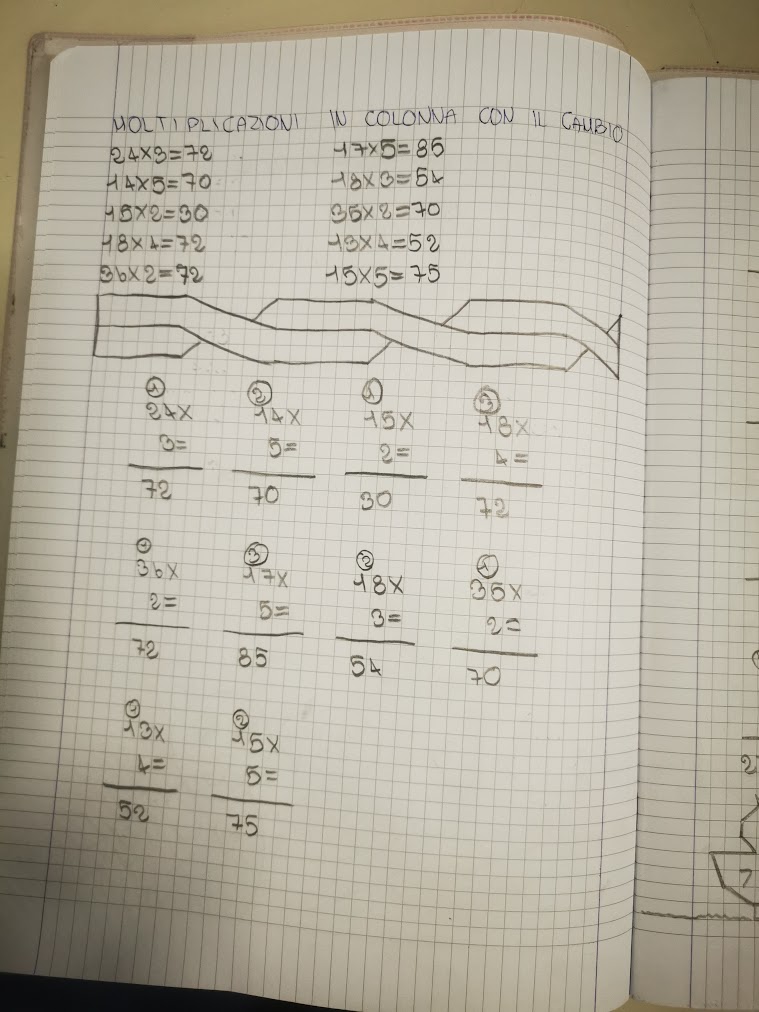 MOLTIPLICAZIONI IN COLONNA CON IL CAMBIO
24x3=72 17x5=85
14x5=70 18x3=54
15x2=30 35x2=70
18x4=72 13x4=52
36x2=72 15x5=75
1 2 1 3
24x 14x 15x 18x
3= 5= 2= 4=
72 70 30 72
1 3 2 1
36x 17x 18x 35x
2= 5= 3= 2=
72 85 54 70
1 2
13x 15x
4= 5=
52 75